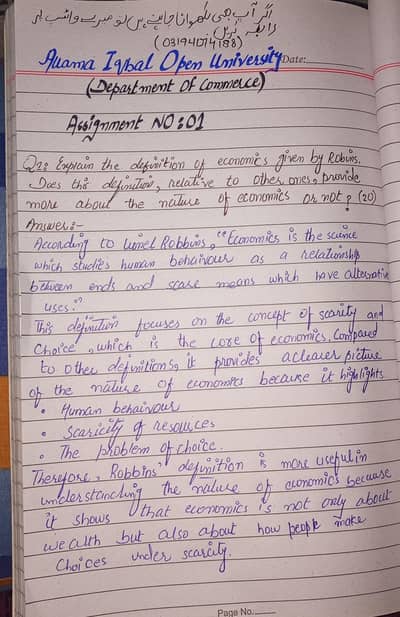 اگر آپ بھی لکھوانا چاہتے ہیں تو میرے واٹس اپ پر
رابطہ کریں
(03194074188)
Date:
Auama Iqbal Open University
(Department Of Commerce)
Assignment NO:01
Q2: Explain the definition of economics given by Robins.
Does this definition, relative to other ones, provide
more about the nature of economics or not? (20)
Answer:-
According to Lionel Robbins, "Economics is the science
which studies human behaivour as a relationship
between ends and scase means which have alternative
uses."
This definition focuses on the concept of scarity and
Choice, which is the core of economics. Compared
to other definitions, it provides a clearer picture
of the nature of economics because it highlights
• Human behaivour
• Scaricity of resources
• The problem of choice.
Therefore, Robbins' definition is more useful in
understanding the nature of economics because
it shows that economics is not only about
wealth but also about how people make
Choices under scarcity.
Page No.